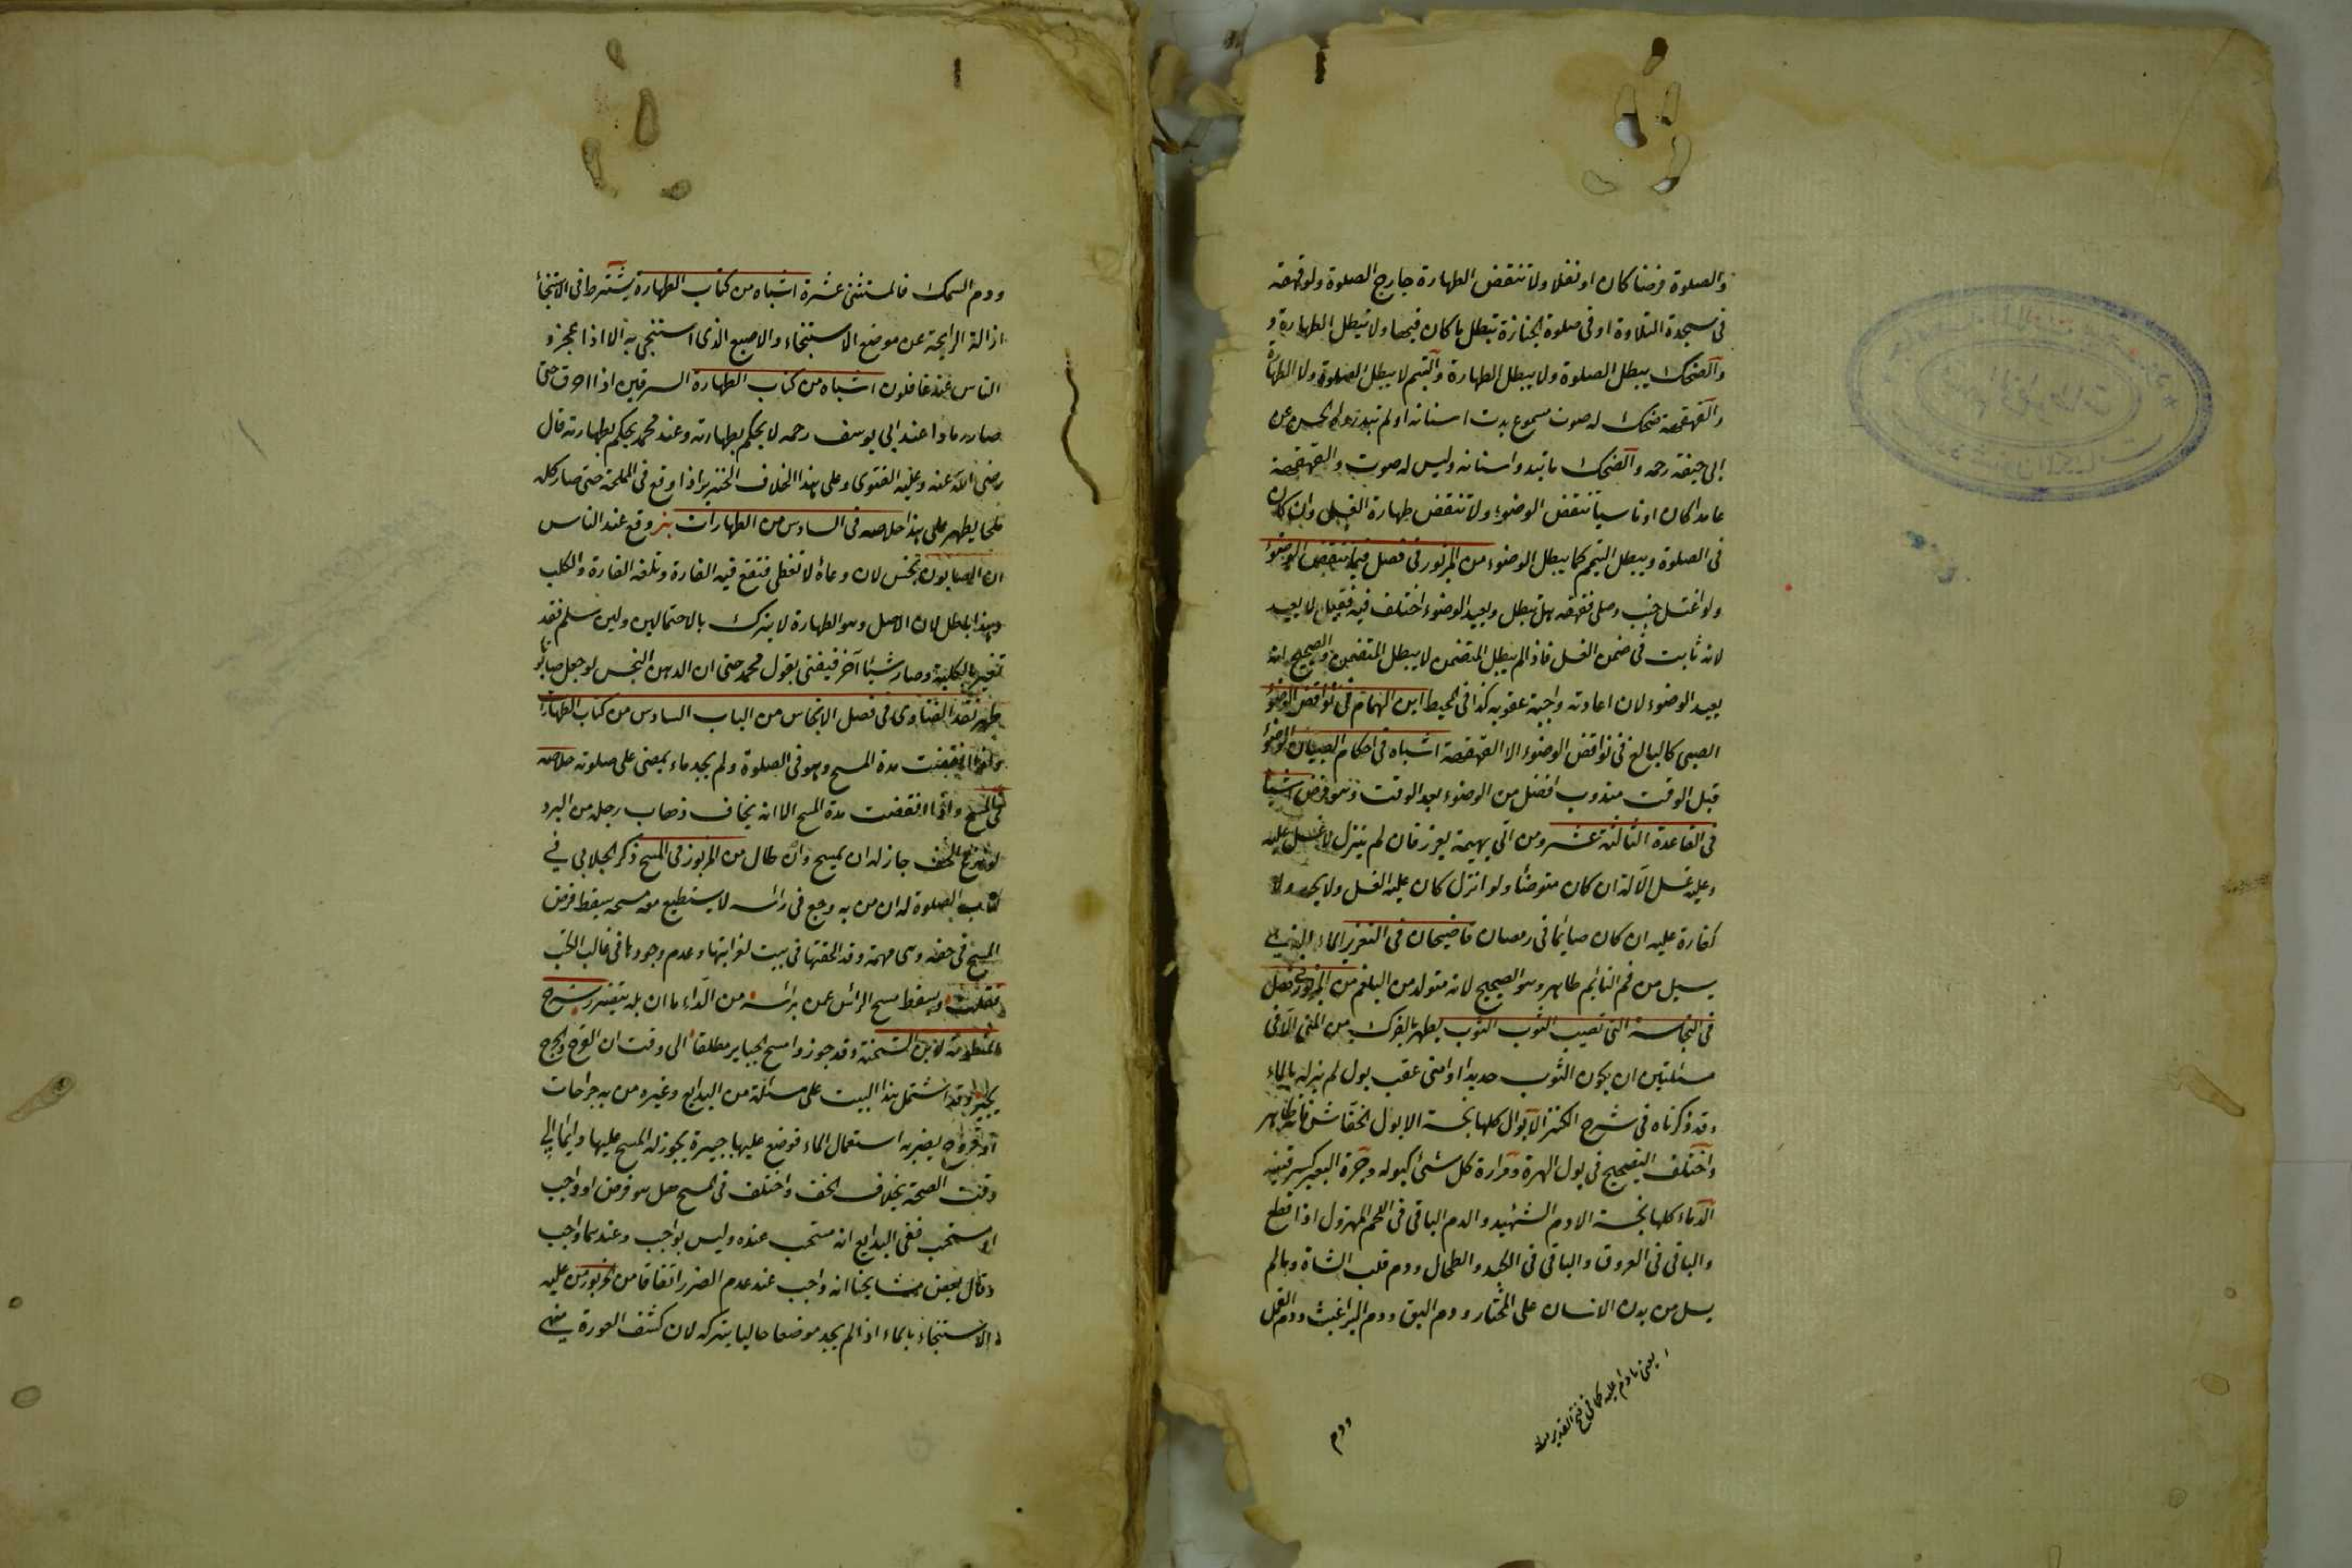 والصلوة فرضا كان او نفلا ولا تنقض الطهارة خارج الصلوة ولو قهقه
فى سجدة التلاوة او فى صلوة الجنازة تبطل ما كان فيها ولا تبطل الطهارة و
والضحك يبطل الصلوة ولا يبطل الطهارة والتبسم لا يبطل الصلوة ولا الطهارة
والقهقهة ضحك له صوت مسموع بدت اسنانه او لم تبد رواه الحسن عن
ابى حنيفة رحمه والضحك ما تبدو اسنانه وليس له صوت والقهقهة
عامدا كان او ناسيا تنقض الوضوء ولا تنقض طهارة الغسل وان كان
فى الصلوة ويبطل التيمم كما يبطل الوضوء من المزبور فى فصل فيما ينقض الوضوء
ولو اغتسل جنب وصلى فقهقه هل تبطل ويعيد الوضوء اختلف فيه فقيل لا يعيد
لانه ثابت فى ضمن الغسل فاذا لم يبطل المتضمن لا يبطل المتضمن والصحيح انه
يعيد الوضوء لان اعادته واجبة عقوبه كذا فى المحيط ابن الهمام فى نواقض الوضوء
الصبى كالبالغ فى نواقض الوضوء الا القهقهة اشباه فى احكام الصبيان الوضوء
قبل الوقت مندوب افضل من الوضوء بعد الوقت وهو فرض اشباه
فى القاعدة الثالثة عشر ومن اتى بهيمة يعزر فان لم ينزل لا غسل عليه
وعليه غسل الآلة ان كان متوضئا ولو انزل كان عليه الغسل ولا يحد ولا
كفارة عليه ان كان صايما فى رمضان قاضيخان فى التعزير الماء الذى
يسيل من فم النايم طاهر وهو الصحيح لانه متولد من البلغم من المزبور فى فصل
فى النجاسة التى تصيب الثوب الثوب يطهر بالفرك من المنى الا فى
مسئلتين ان يكون الثوب جديدا او امنى عقب بول لم يزله بالماء
وقد ذكرناه فى شرح الكنز الابوال كلها نجسة الا بول الخفاش فانه طاهر
واختلف التصحيح فى بول الهرة ومرارة كل شئ كبوله وجرة البعير كسرقينه
الدماء كلها نجسة الا دم الشهيد والدم الباقى فى اللحم المهزول اذا قطع
والباقى فى العروق والباقى فى الكبد والطحال ودم قلب الشاة وما لم
يسل من بدن الانسان على المختار ودم البق ودم البراغيث ودم القمل
يعنى ما دام عليه كما فى فتح القدير منه
ودم
ودم السمك فالمستثنى عشرة اشباه من كتاب الطهارة يشترط فى الاستنجاء
ازالة الرايحة عن موضع الاستنجاء والاصبع الذى استنجى به الا اذا عجز و
الناس عنه غافلون اشباه من كتاب الطهارة السرقين اذا احرق حتى
صار رمادا عند ابى يوسف رحمه لا يحكم بطهارته وعند محمد يحكم بطهارته قال
رضى الله عنه وعليه الفتوى وعلى هذا الخلاف الخنزير اذا وقع فى المملحة حتى صار كله
ملحا يطهر على هذا خلاصه فى السادس من الطهارات وقع عند الناس
ان الصابون نجس لان وعاءه لا تغطى فتقع فيه الفارة وتلغه الفارة والكلب
وهذا باطل لان الاصل وهو الطهارة لا يترك بالاحتمالين ولئن سلم فقد
تغير بالكلية وصار شيئا آخر فيفتى بقول محمد حتى ان الدهن النجس لو جعل صابونا
طهر نقد الفتاوى فى فصل الانجاس من الباب السادس من كتاب الطهارة
ولو انقضت مدة المسح وهو فى الصلوة ولم يجد ماء يمضى على صلوته خلاصه
فى المسح واذا انقضت مدة المسح الا انه يخاف ذهاب رجله من البرد
لو نزع الخف جاز له ان يمسح وان طال من المزبور فى المسح ذكر الجلابى فى
كتاب الصلوة له ان من به وجع فى رأسه لا يستطيع معه مسحه يسقط فرض
المسح فى حقه وهى مهمة وقد الحقتها فى بيت لغرابتها وعدم وجودها فى غالب الكتب
فقلت ويسقط مسح الرأس عمن برأسه من الداء ما ان بله يتضرر شرح
المنظومة لابن الشحنة وقد جوزوا مسح الجباير مطلقا الى وقت ان القرح والجرح
يجبر وقد اشتمل هذا البيت على مسئلة من البدايع وغيره من به جراحات
او قروح يضر به استعمال الماء فوضع عليها جبيرة يجوز له المسح عليها دايما الى
وقت الصحة بخلاف الخف واختلف فى المسح هل هو فرض او واجب
او مستحب ففى البدايع انه مستحب عنده وليس بواجب وعندهما واجب
وقال بعض مشايخنا انه واجب عند عدم الضرر اتفاقا من المزبور من عليه
الاستنجاء بالماء اذا لم يجد موضعا خاليا يتركه لان كشف العورة منهى